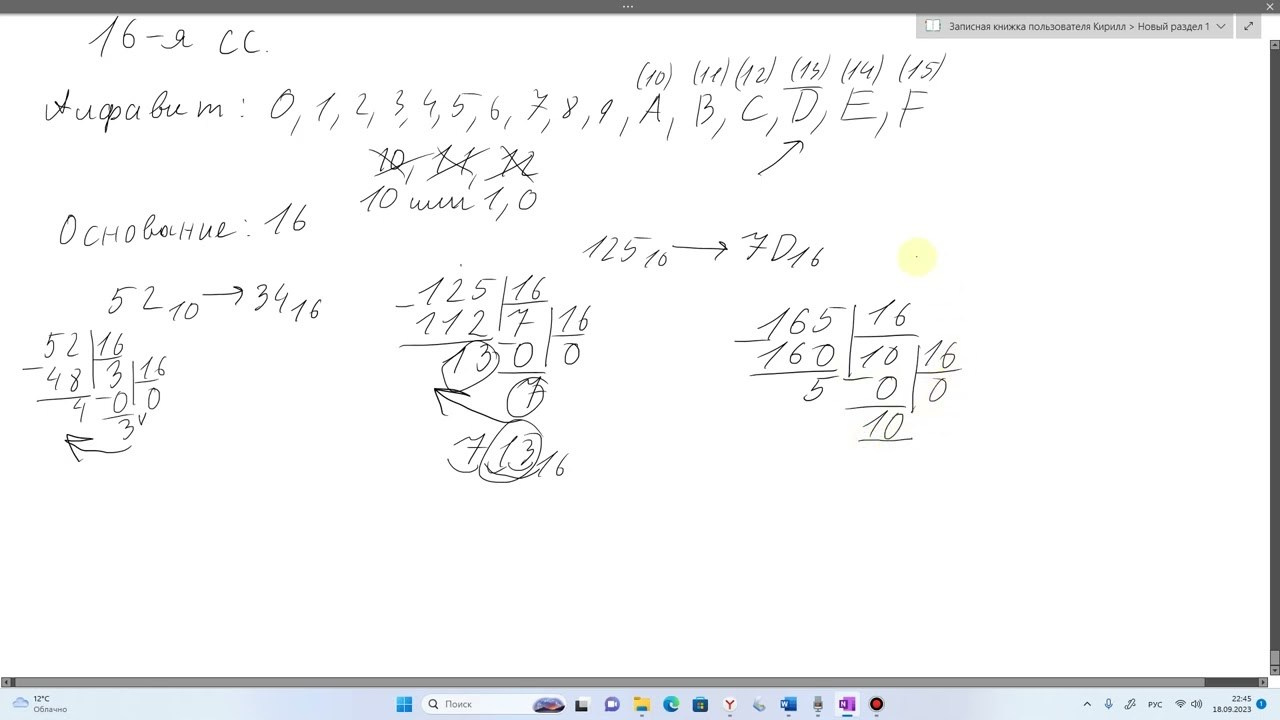 Записная книжка пользователя Кирилл > Новый раздел 1
16-я сс.
(10) (11) (12) (13) (14) (15)
Алфавит: 0, 1, 2, 3, 4, 5, 6, 7, 8, 9, A, B, C, D, E, F
10, 11, 12
10 или 1,0
Основание: 16
125₁₀ → 7D₁₆
52₁₀ → 34₁₆
52 16
- 48 3 16
4 - 0 0
3
- 125 16
112 7 16
13 - 0 0
7
7 13₁₆
- 165 16
160 10 16
5 - 0 0
10
12°C
Облачно
Поиск
РУС
22:45
18.09.2023